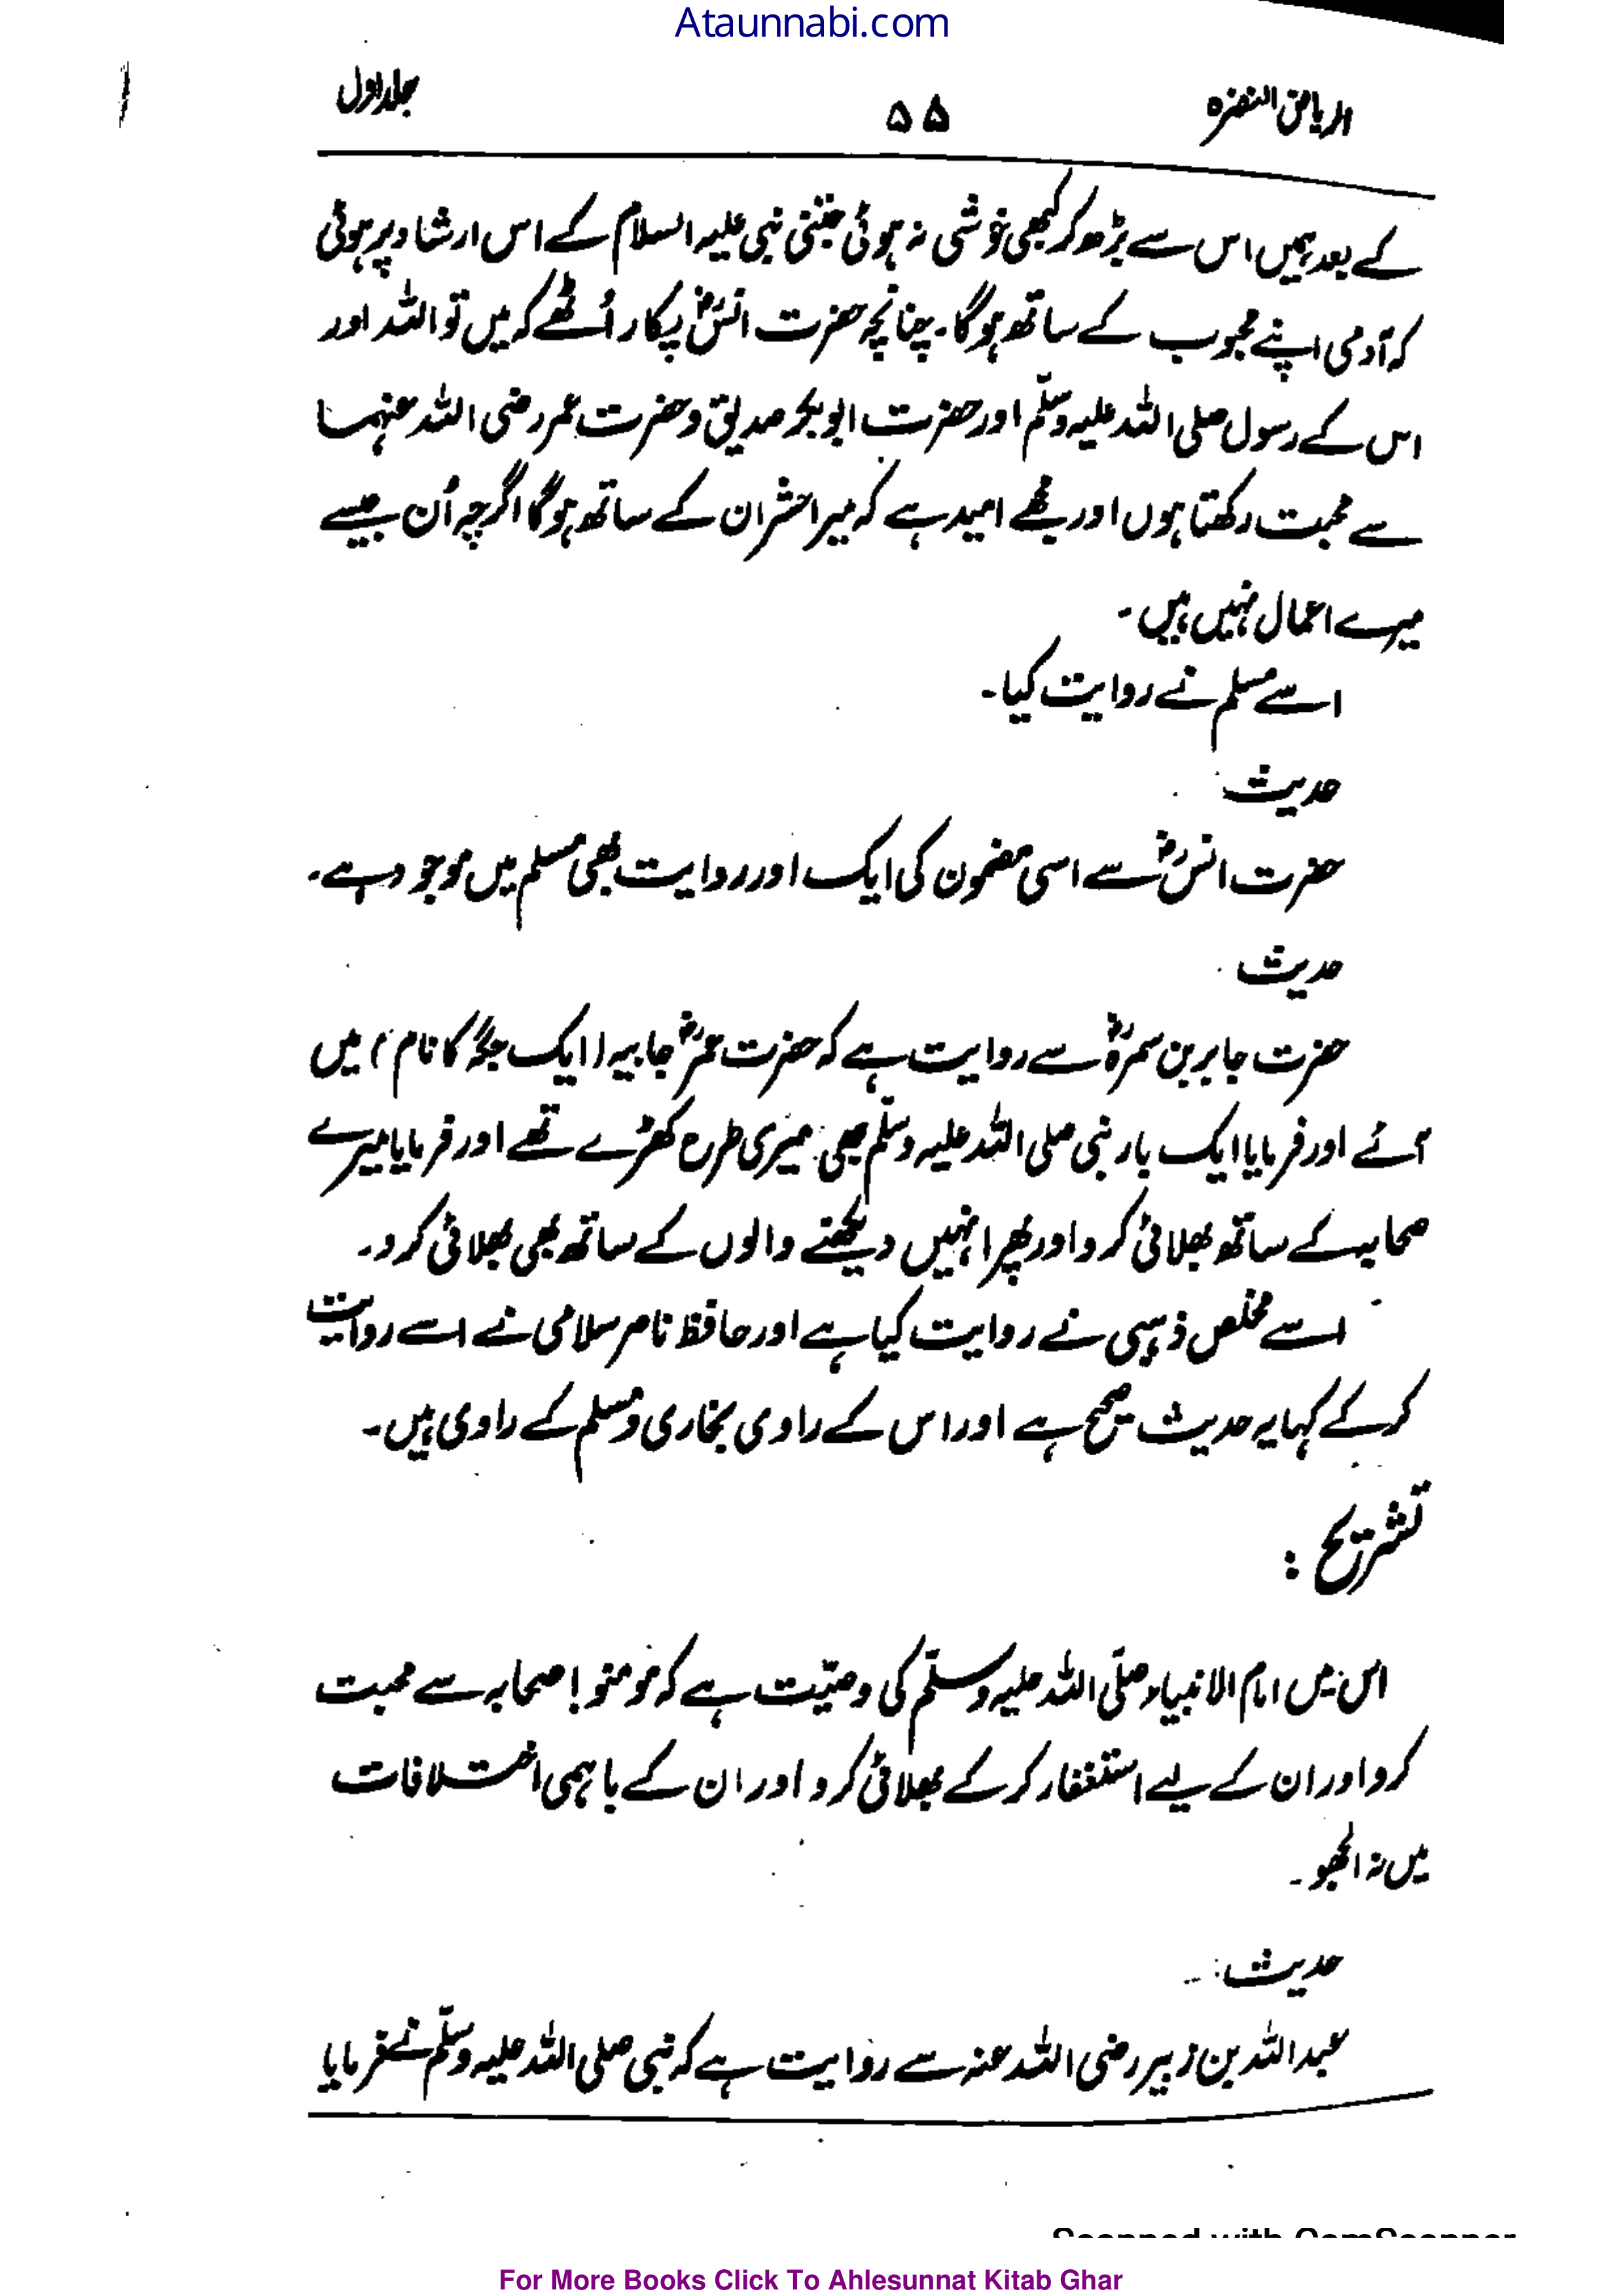 Ataunnabi.com
الریاض النضرہ ۵۵ جلد اول
کے بعد ہمیں اس سے بڑھ کر کبھی خوشی نہ ہوئی جتنی نبی علیہ السلام کے اس ارشاد پر ہوئی
کہ آدمی اپنے محبوب کے ساتھ ہو گا۔ چنانچہ حضرت انسؓ پکار اُٹھے کہ میں تو اللہ اور
اس کے رسول صلی اللہ علیہ وسلّم اور حضرت ابو بکر صدیق و حضرت عمر رضی اللہ عنہما
سے محبت رکھتا ہوں اور مجھے امید ہے کہ میرا حشر ان کے ساتھ ہو گا اگرچہ اُن جیسے
میرے اعمال نہیں ہیں۔
اسے مسلم نے روایت کیا۔
حدیث
حضرت انسؓ سے اسی مضمون کی ایک اور روایت بھی مسلم میں موجود ہے۔
حدیث
حضرت جابر بن سمرہؓ سے روایت ہے کہ حضرت عمرؓ جابیہ (ایک جگہ کا نام) میں
آئے اور فرمایا ایک بار نبی صلی اللہ علیہ وسلّم بھی میری طرح کھڑے تھے اور فرمایا میرے
صحابہ کے ساتھ بھلائی کرو اور پھر انہیں دیکھنے والوں کے ساتھ بھی بھلائی کرو۔
اسے مخلص ذہبی نے روایت کیا ہے اور حافظ ناصر سلامی نے اسے روایت
کر کے کہا یہ حدیث صحیح ہے اور اس کے راوی بخاری و مسلم کے راوی ہیں۔
تشریح :
اس میں امام الانبیاء صلّی اللہ علیہ وسلّم کی وصیّت ہے کہ مومنو! صحابہ سے محبت
کرو اور ان کے لیے استغفار کر کے بھلائی کرو اور ان کے باہمی اختلافات
میں نہ الجھو۔
حدیث:۔
عبداللہ بن زبیر رضی اللہ عنہ سے روایت ہے کہ نبی صلی اللہ علیہ وسلّم نے فرمایا
Scanned with CamScanner
For More Books Click To Ahlesunnat Kitab Ghar